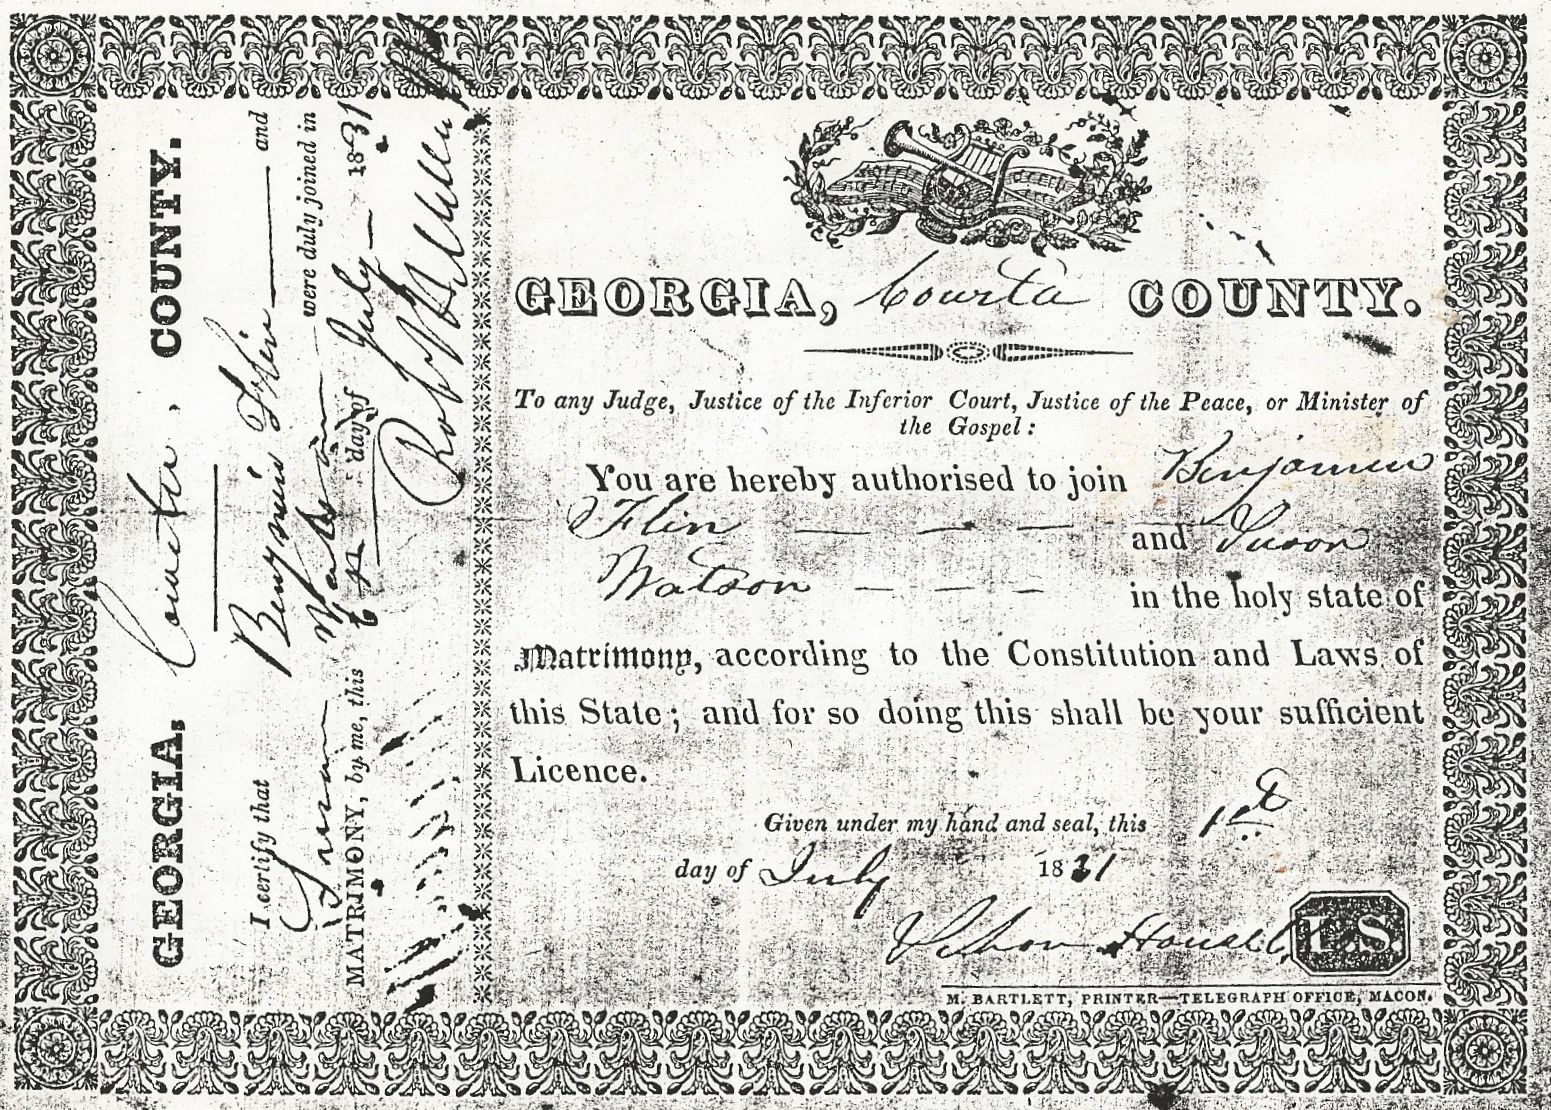 GEORGIA, Coweta COUNTY.
To any Judge, Justice of the Inferior Court, Justice of the Peace, or Minister of
the Gospel:
You are hereby authorised to join Benjamin
Flin and Suson
Watson in the holy state of
Matrimony, according to the Constitution and Laws of
this State; and for so doing this shall be your sufficient
Licence.
Given under my hand and seal, this 1st
day of July 1831
L.S.
M. BARTLETT, PRINTER—TELEGRAPH OFFICE, MACON.
GEORGIA, Coueta, COUNTY.
I certify that Benjmin and
Suson Watson were duly joined in
MATRIMONY, by me, this day of July 1831